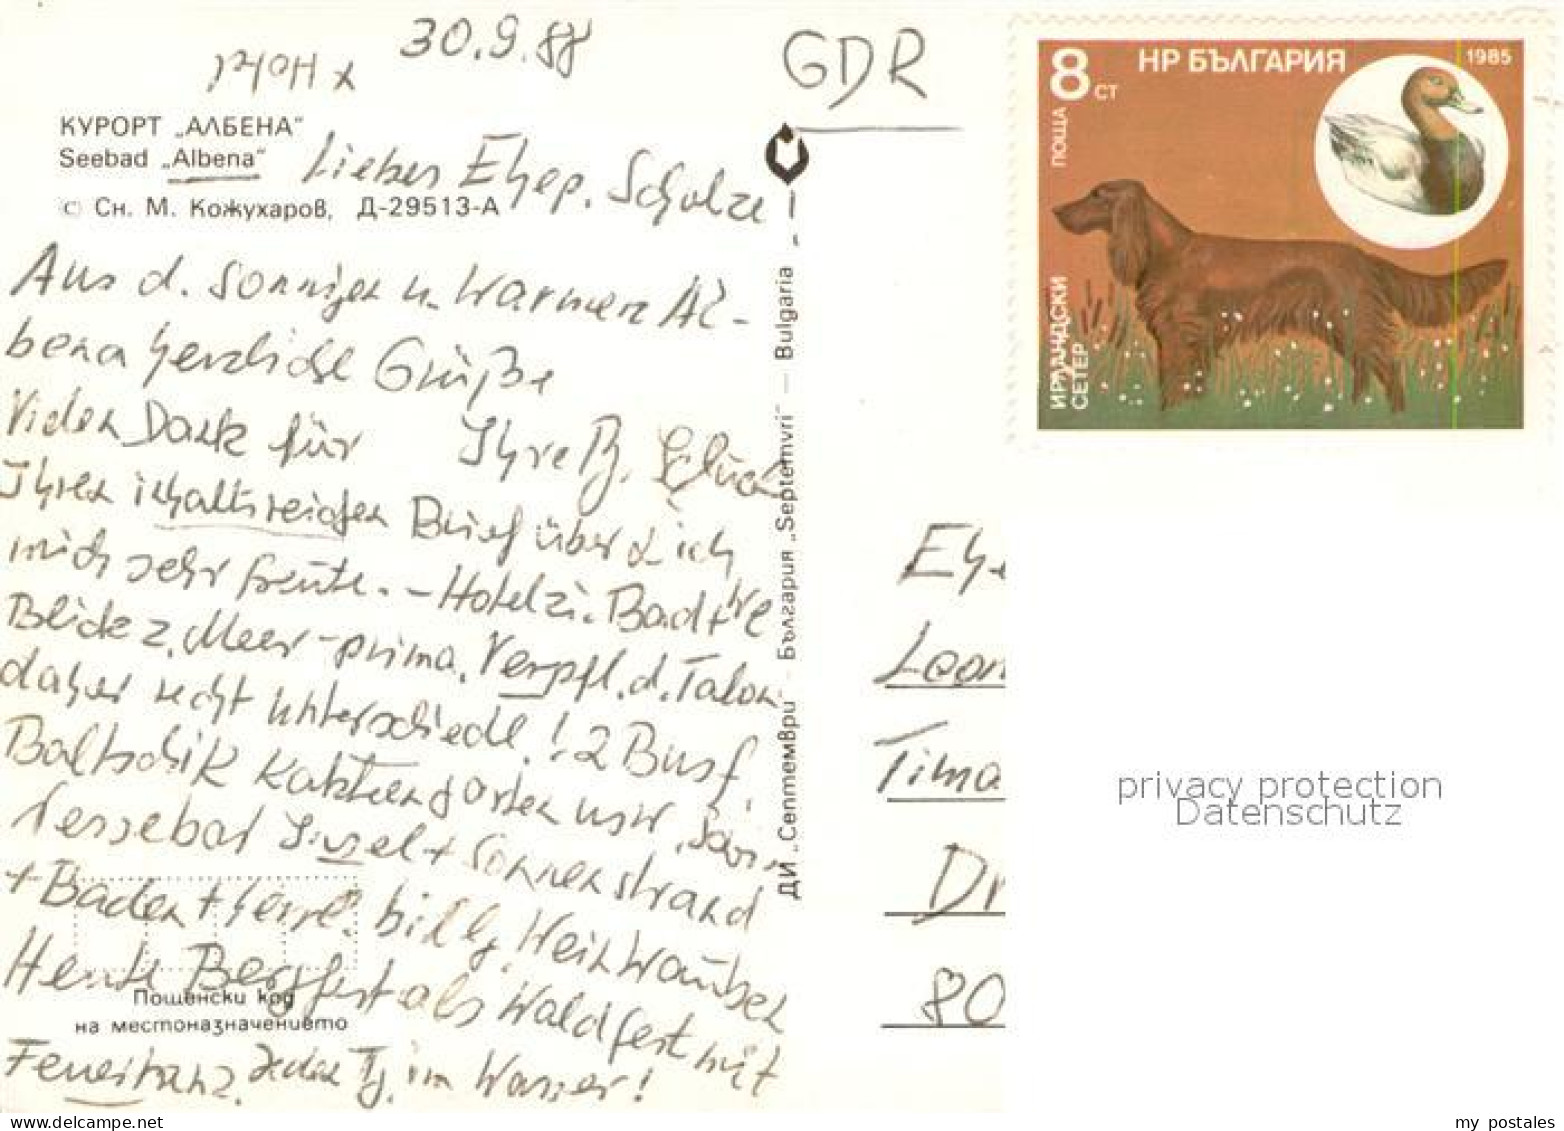 30.9.88
GDR
КУРОРТ „АЛБЕНА“
Seebad „Albena“
© Сн. М. Кожухаров, Д-29513-А
Liebes Ehep. Scholze!
Aus d. sonnigen u. warmen Al-
bena herzliche Grüße
Vielen Dank für Ihre B.
Ihren inhaltsreichen Brief über d. ich
mich sehr freute. - Hotelzi. Bad + We
Blick z. Meer - prima. Verpfl. d. Talon
daher recht unterschiedl.! 2 Busf.
Baltschik Kakteengarten usw.
Nessebar Insel + Sonnenstrand
+ Baden + herrl. billg. Weintrauben
Heute Bergfest als Waldfest mit
Feuertanz. Jeden Tg. im Wasser!
Пощенски код
на местоназначението
ДИ „Септември“ — България „Septemvri“ — Bulgaria
8 СТ
НР БЪЛГАРИЯ
1985
ПОЩА
ИРЛАНДСКИ
СЕТЕР
Ehe
Leon
Tima
Dr
80
privacy protection
Datenschutz
www.delcampe.net
my_postales